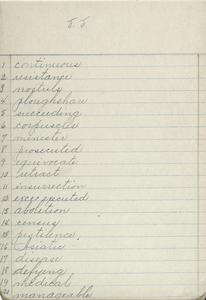 1 continuous
2 resistance
3
4 ploughshare
5 succeeding
6 corpuscles
7 minister
8 prosecuted
9 equivocate
10 retract
11 insurrection
12 executed
13 abolition
14 census
15 pestilence
16 Asiatic
17 disease
18 defying
19 medical
20 manageable